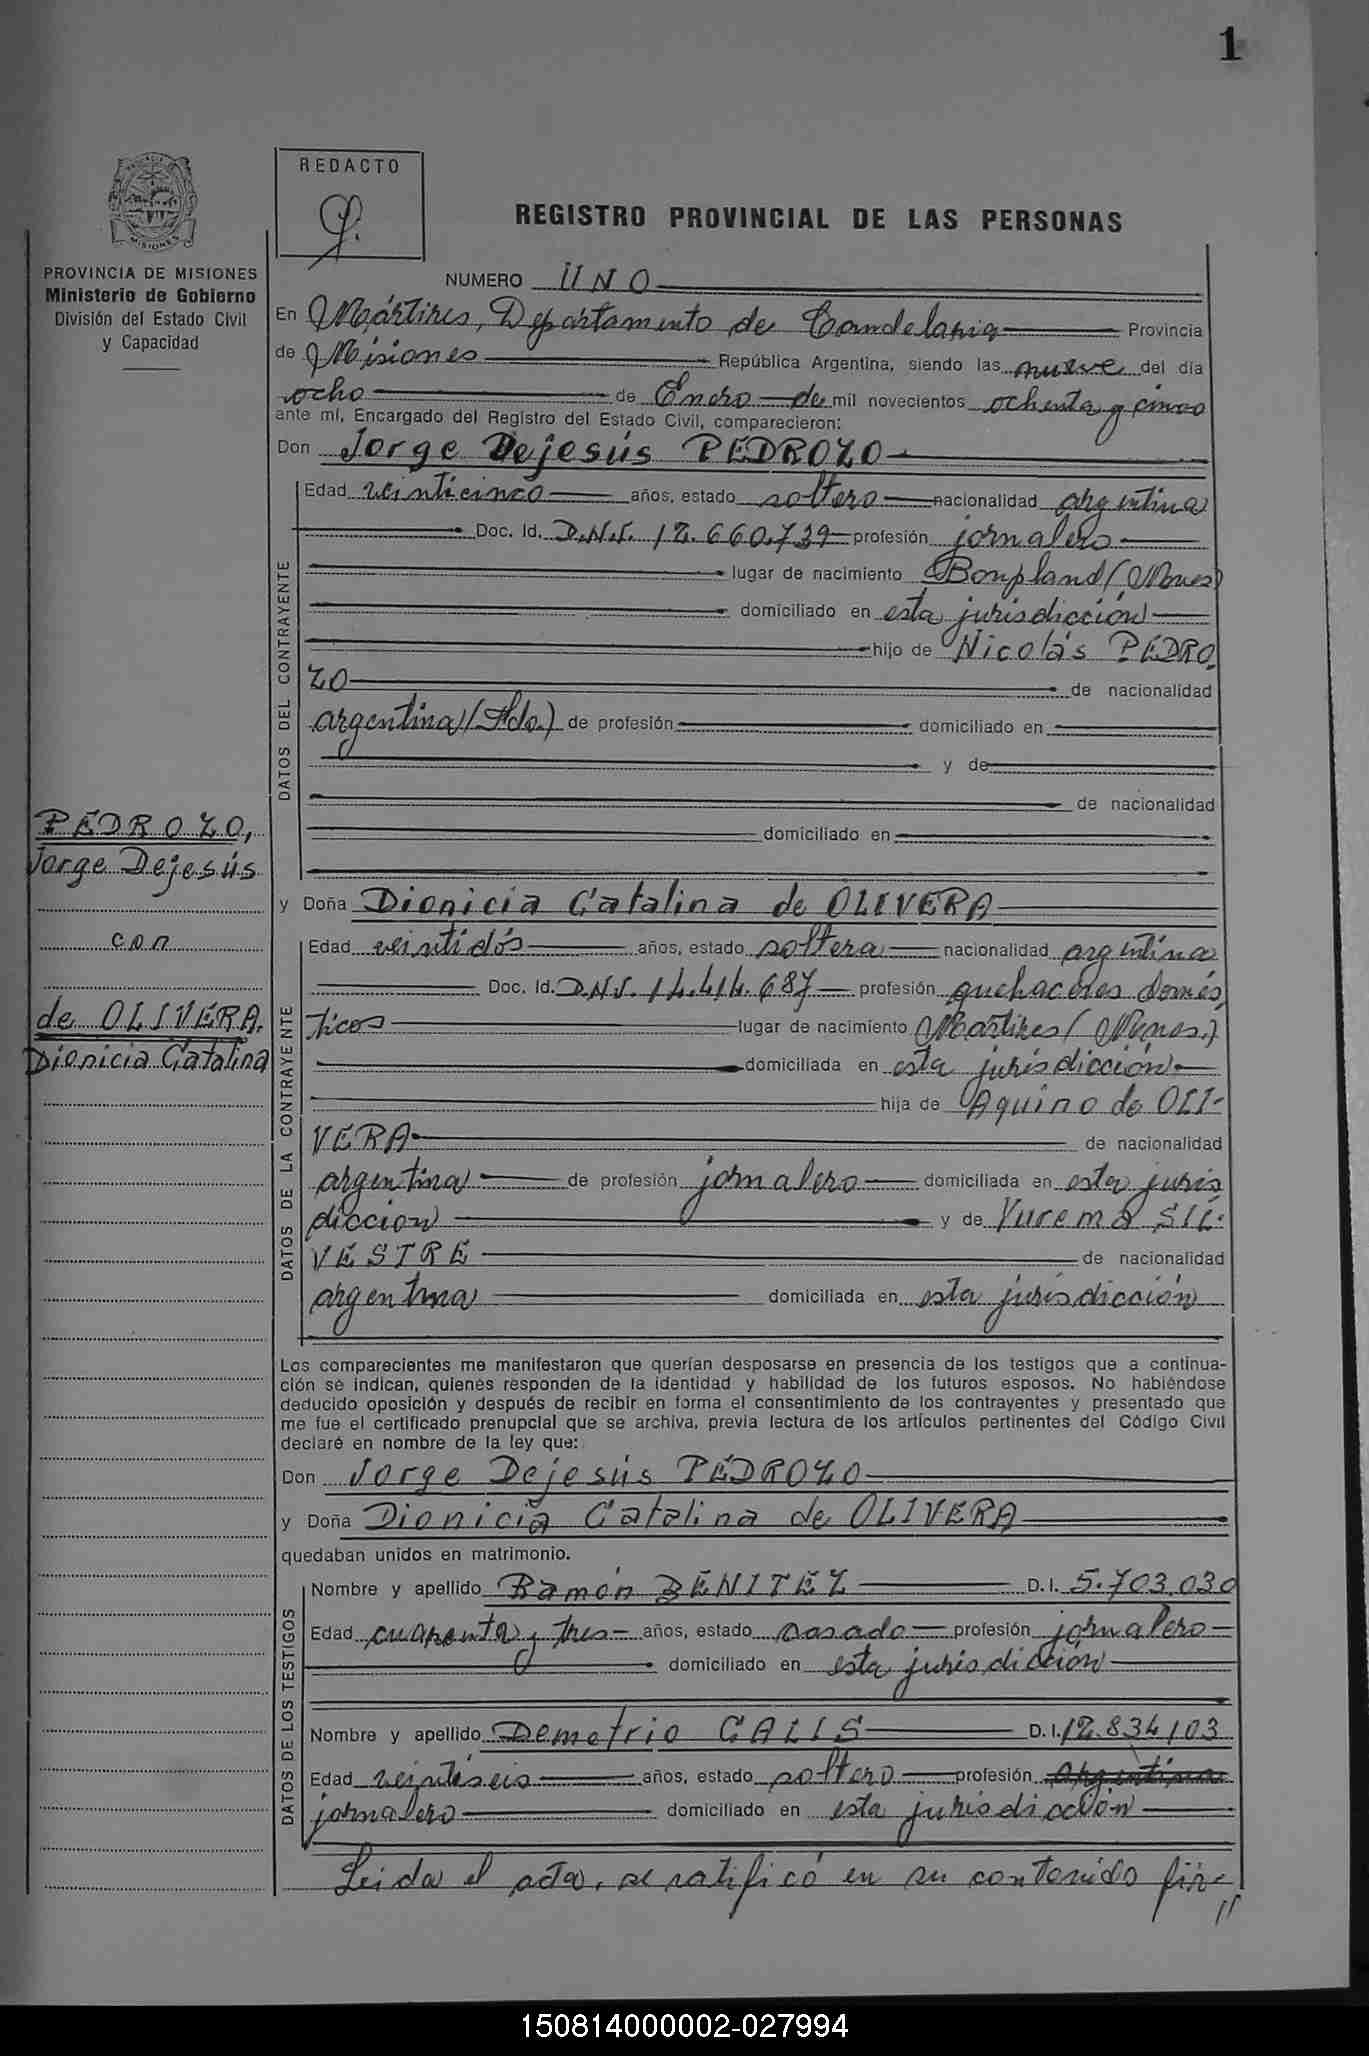 1
REDACTO
REGISTRO PROVINCIAL DE LAS PERSONAS
PROVINCIA DE MISIONES
Ministerio de Gobierno
División del Estado Civil
y Capacidad
NUMERO UNO
En Mártires, Departamento de Candelaria Provincia
de Misiones República Argentina, siendo las nueve del día
ocho de Enero de mil novecientos ochenta y cinco
ante mí, Encargado del Registro del Estado Civil, comparecieron:
Don Jorge Dejesús PEDROZO
DATOS DEL CONTRAYENTE
Edad veinticinco años, estado soltero nacionalidad argentina
Doc. Id. D.N.I. 12.660.739 profesión jornalero
lugar de nacimiento Bonpland (Mnes)
domiciliado en esta jurisdicción
hijo de Nicolás PEDRO
ZO de nacionalidad
argentina (Fdo.) de profesión domiciliado en
y de
de nacionalidad
domiciliado en
PEDROZO,
Jorge Dejesús
con
de OLIVERA,
Dionicia Catalina
y Doña Dionicia Catalina de OLIVERA
DATOS DE LA CONTRAYENTE
Edad veintidós años, estado soltera nacionalidad argentina
Doc. Id. D.N.I. 14.414.687 profesión quehaceres domés
ticos lugar de nacimiento Mártires (Mnes.)
domiciliada en esta jurisdicción
hija de Aquino de OLI-
VERA de nacionalidad
argentina de profesión jornalero domiciliada en esta juris
diccion y de Yurema SIL-
VESTRE de nacionalidad
argentina domiciliada en esta jurisdicción
Los comparecientes me manifestaron que querían desposarse en presencia de los testigos que a continua-
ción se indican, quienes responden de la identidad y habilidad de los futuros esposos. No habiéndose
deducido oposición y después de recibir en forma el consentimiento de los contrayentes y presentado que
me fue el certificado prenupcial que se archiva, previa lectura de los artículos pertinentes del Código Civil
declaré en nombre de la ley que:
Don Jorge Dejesús PEDROZO
y Doña Dionicia Catalina de OLIVERA
quedaban unidos en matrimonio.
DATOS DE LOS TESTIGOS
Nombre y apellido Ramón BENITEZ D.I. 5.703.030
Edad cuarenta y tres años, estado casado profesión jornalero
domiciliado en esta jurisdicción
Nombre y apellido Demetrio GALIS D.I. 12.834.103
Edad veintiseis años, estado soltero profesión argentina
jornalero domiciliado en esta jurisdicción
Leida el acta, se ratificó en su contenido fir-
//
150814000002-027994